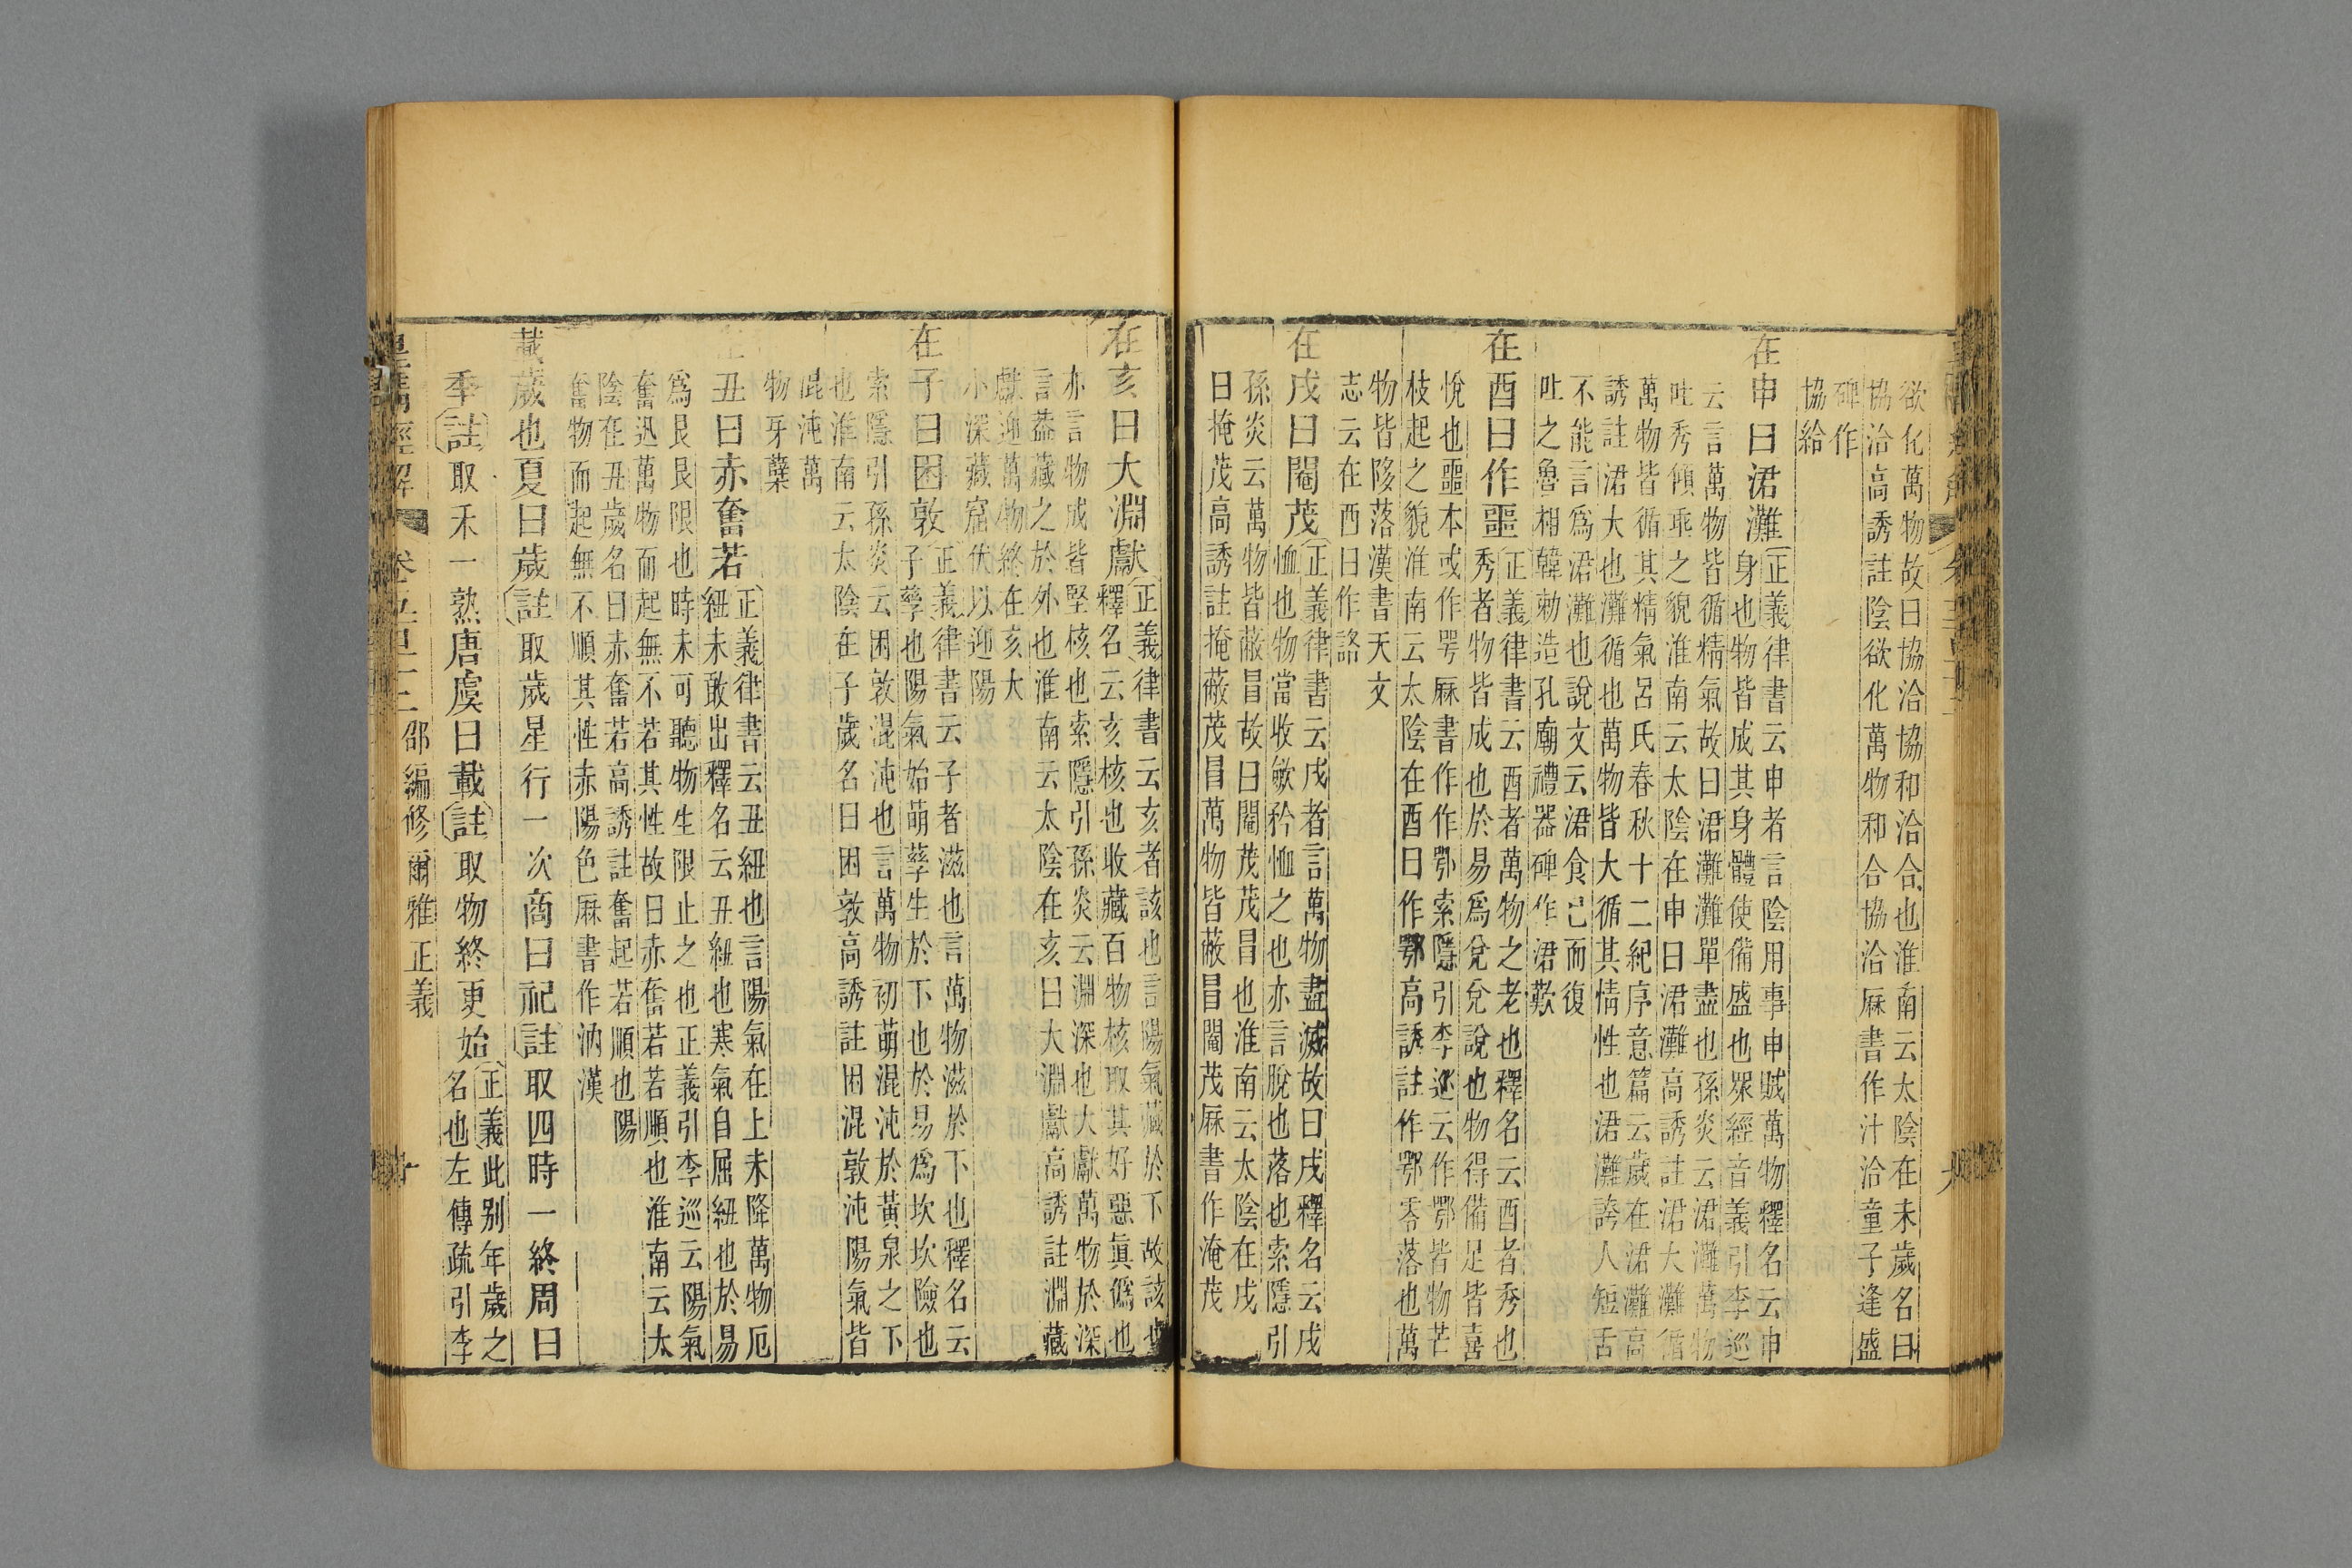 欲化萬物故曰協洽協和洽合也淮南云太陰在未歲名曰
協洽高誘註陰欲化萬物和合協洽厤書作汁洽童子逢盛
碑作
協給
在申曰涒灘
正義律書云申者言陰用事申賊萬物釋名云申
身也物皆成其身體使備盛也眾經音義引李巡
云言萬物皆循精氣故曰涒灘灘單盡也孫炎云涒灘萬物
吐秀傾垂之貌淮南云太陰在申曰涒灘高誘註涒大灘循
萬物皆循其精氣呂氏春秋十二紀序意篇云歲在涒灘高
誘註涒大也灘循也萬物皆大循其情性也涒灘誇人短舌
不能言為涒灘也說文云涒食已而復
吐之魯相韓勑造孔廟禮器碑作涒歎
在酉曰作噩
正義律書云酉者萬物之老也釋名云酉者秀也
秀者物皆成也於易爲兌兌說也物得備足皆喜
悅也噩本或作咢厤書作作鄂索隱引李巡云作鄂皆物芒
枝起之貌淮南云太陰在酉曰作鄂高誘註作鄂零落也萬
物皆陊落漢書天文
志云在酉曰作詻
在戌曰閹茂
正義律書云戌者言萬物盡滅故曰戌釋名云戌
恤也物當收斂矜恤之也亦言脫也落也索隱引
孫炎云萬物皆蔽冒故曰閹茂茂冒也淮南云太陰在戌
曰掩茂高誘註掩蔽茂冒萬物皆蔽冒閹茂厤書作淹茂
在亥曰大淵獻
正義律書云亥者該也言陽氣藏於下故該也
釋名云亥核也收藏百物核取其好惡眞僞也
亦言物成皆堅核也索隱引孫炎云淵深也大獻萬物於深
言葢藏之於外也淮南云太陰在亥曰大淵獻高誘註淵藏
獻迎萬物終在亥大
小深藏窟伏以迎陽
在子曰困敦
正義律書云子者滋也言萬物滋於下也釋名云
子孳也陽氣始萌孳生於下也於易爲坎坎險也
索隱引孫炎云困敦混沌也言萬物初萌混沌於黃泉之下
也淮南云太陰在子歲名曰困敦高誘註困混敦沌陽氣皆
混沌萬
物牙櫱
丑曰赤奮若
正義律書云丑紐也言陽氣在上未降萬物厄
紐未敢出釋名云丑紐也寒氣自屈紐也於易
爲艮艮限也時未可聽物生限止之也正義引李巡云陽氣
奮迅萬物而起無不若其性故曰赤奮若若順也淮南云太
陰在丑歲名曰赤奮若高誘註奮起若順也陽
奮物而起無不順其性赤陽色厤書作汭漢
載歲也夏曰歲註取歲星行一次商曰祀註取四時一終周曰
季註取禾一熟唐虞曰載註取物終更始
正義此别年歲之
名也左傳疏引李
皇淸經解 卷五百十三 邵編修爾雅正義